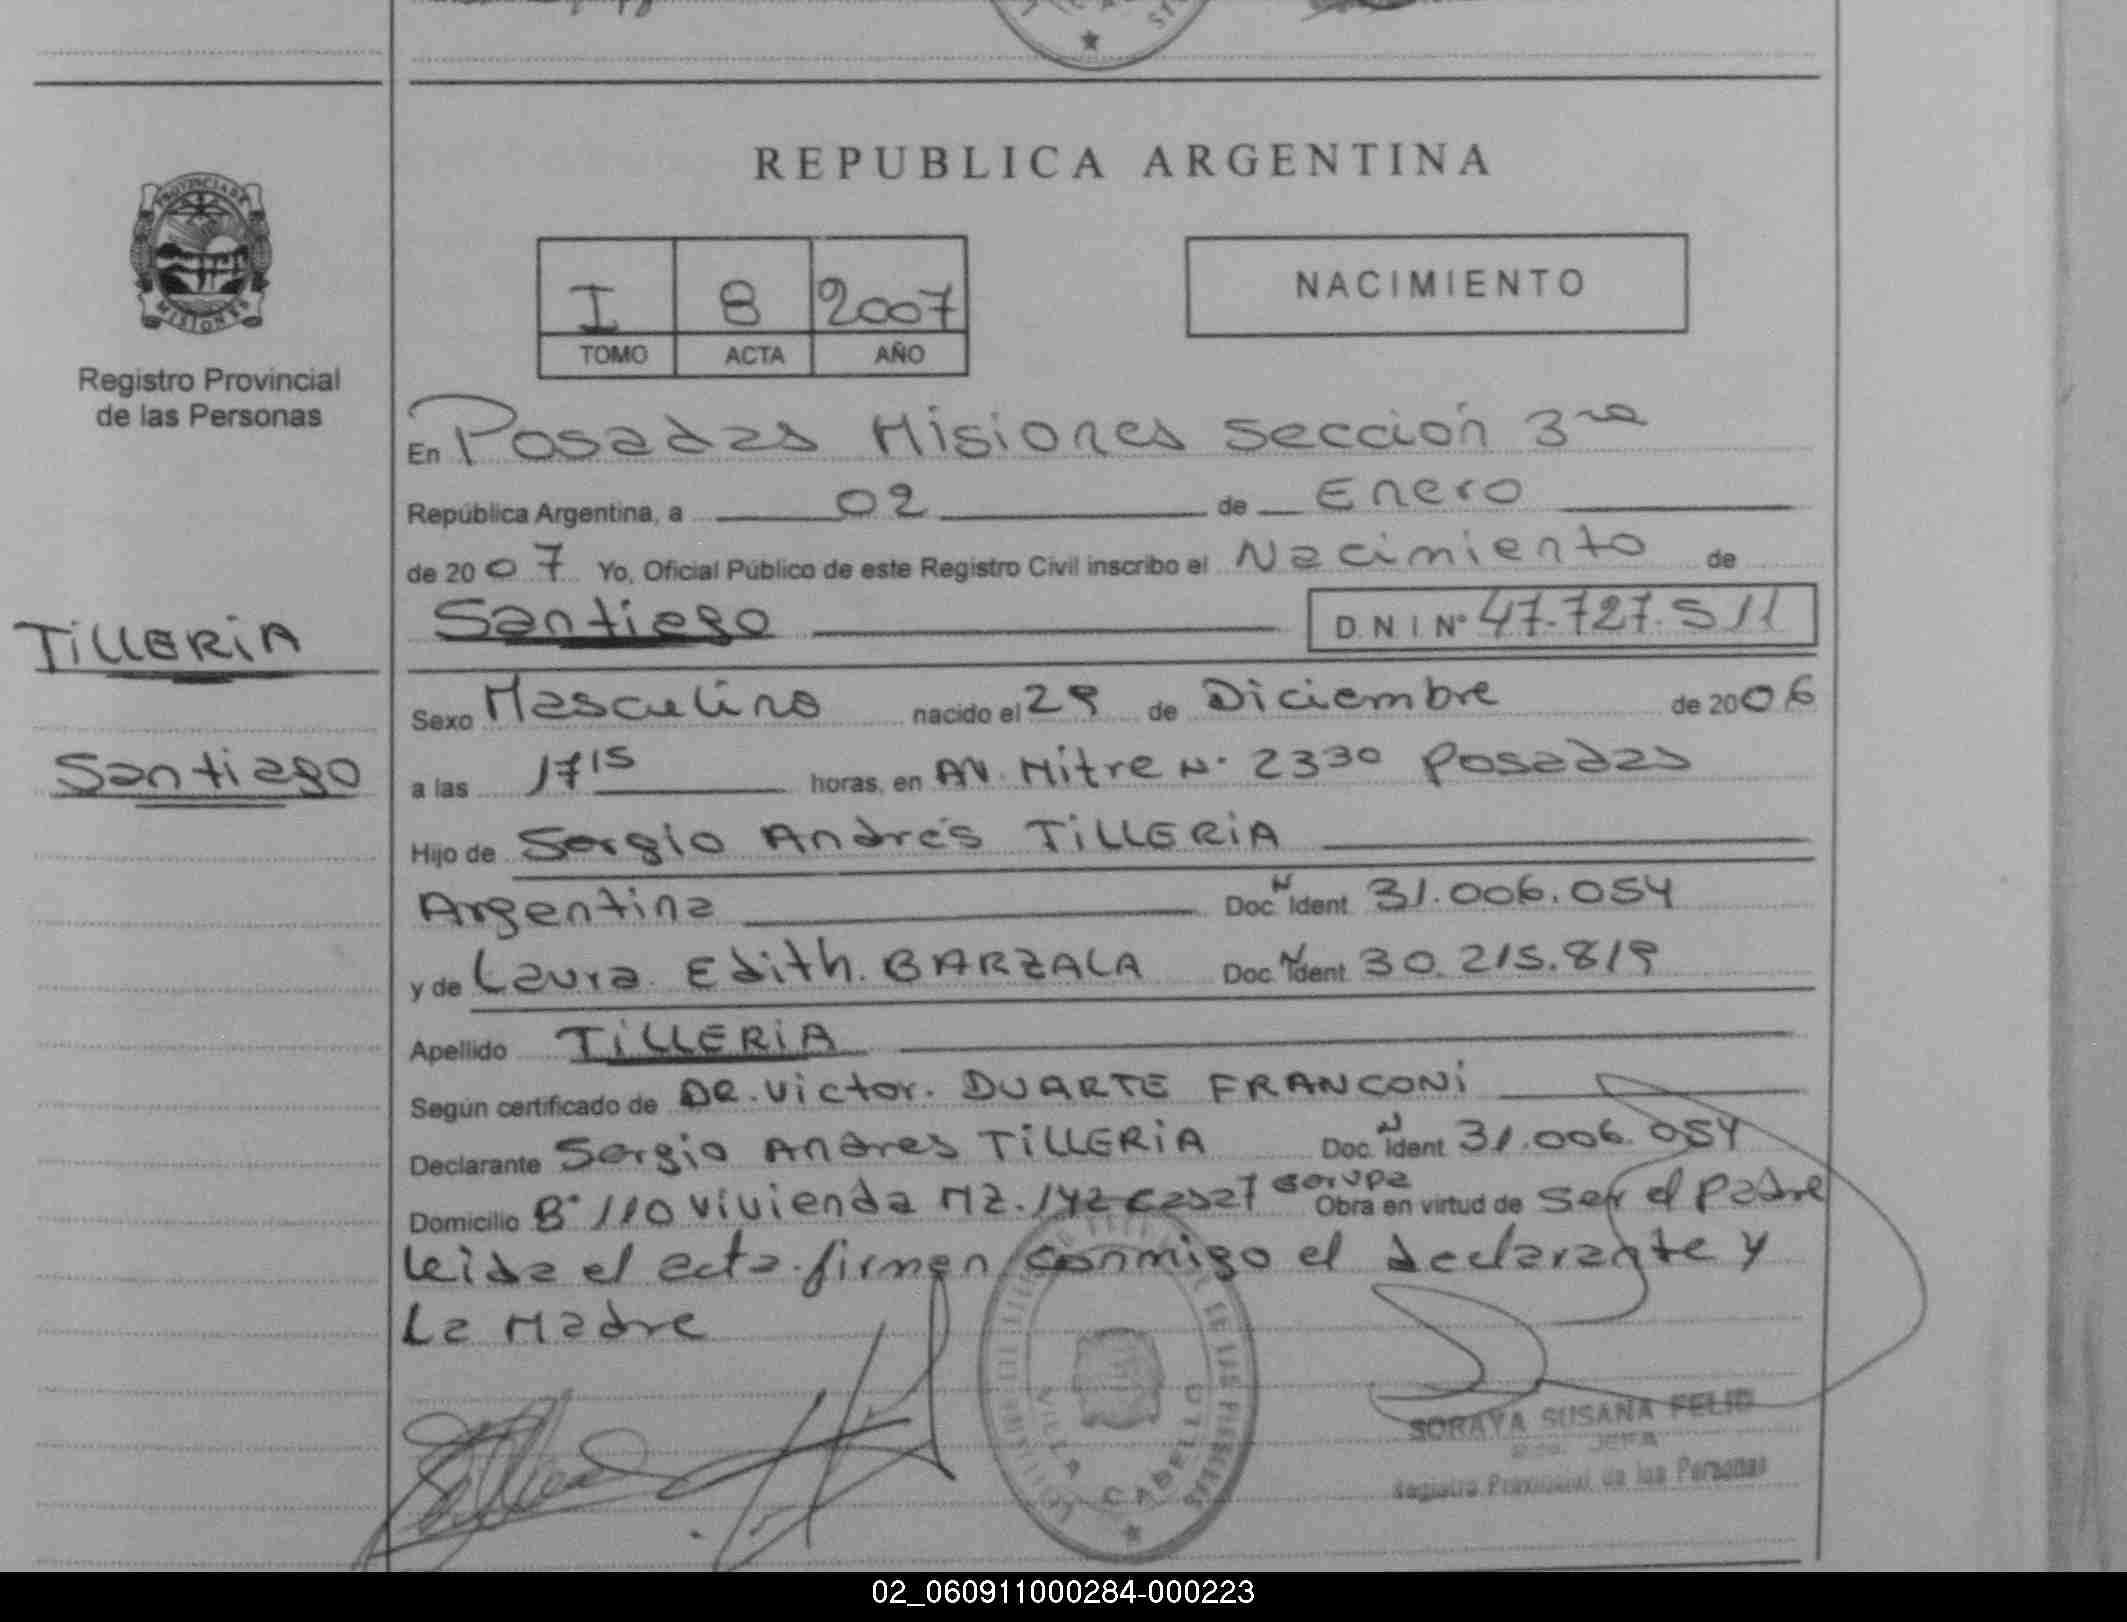 REPUBLICA ARGENTINA
PROVINCIA DE
MISIONES
Registro Provincial
de las Personas
I 8 2007
TOMO ACTA AÑO
NACIMIENTO
En Posadas Misiones sección 3ra
República Argentina, a 02 de Enero
de 2007 Yo, Oficial Público de este Registro Civil inscribo el Nacimiento de
Santiago D.N.I Nº 47.727.511
TiLLERiA
Santiago
Sexo Masculino nacido el 29 de Diciembre de 2006
a las 17 15 horas, en AV. Mitre N· 2330 Posadas
Hijo de Sergio Andrés TiLLERiA
Argentina Doc. N Ident 31.006.054
y de Laura Edith. BARZALA Doc. N Ident 30.215.819
Apellido TiLLERiA
Según certificado de DR. Victor. DUARTE FRANCONi
Declarante Sergio Andres TiLLERiA Doc. N Ident 31.006.054
Domicilio B° 110 vivienda MZ. casa 7 Garupa Obra en virtud de ser el padre
leida el acta firman conmigo el declarante y
La Madre
VILLA CABELLO
SORAYA SUSANA
JEFA
Registro Provincial de las Personas
02_060911000284-000223